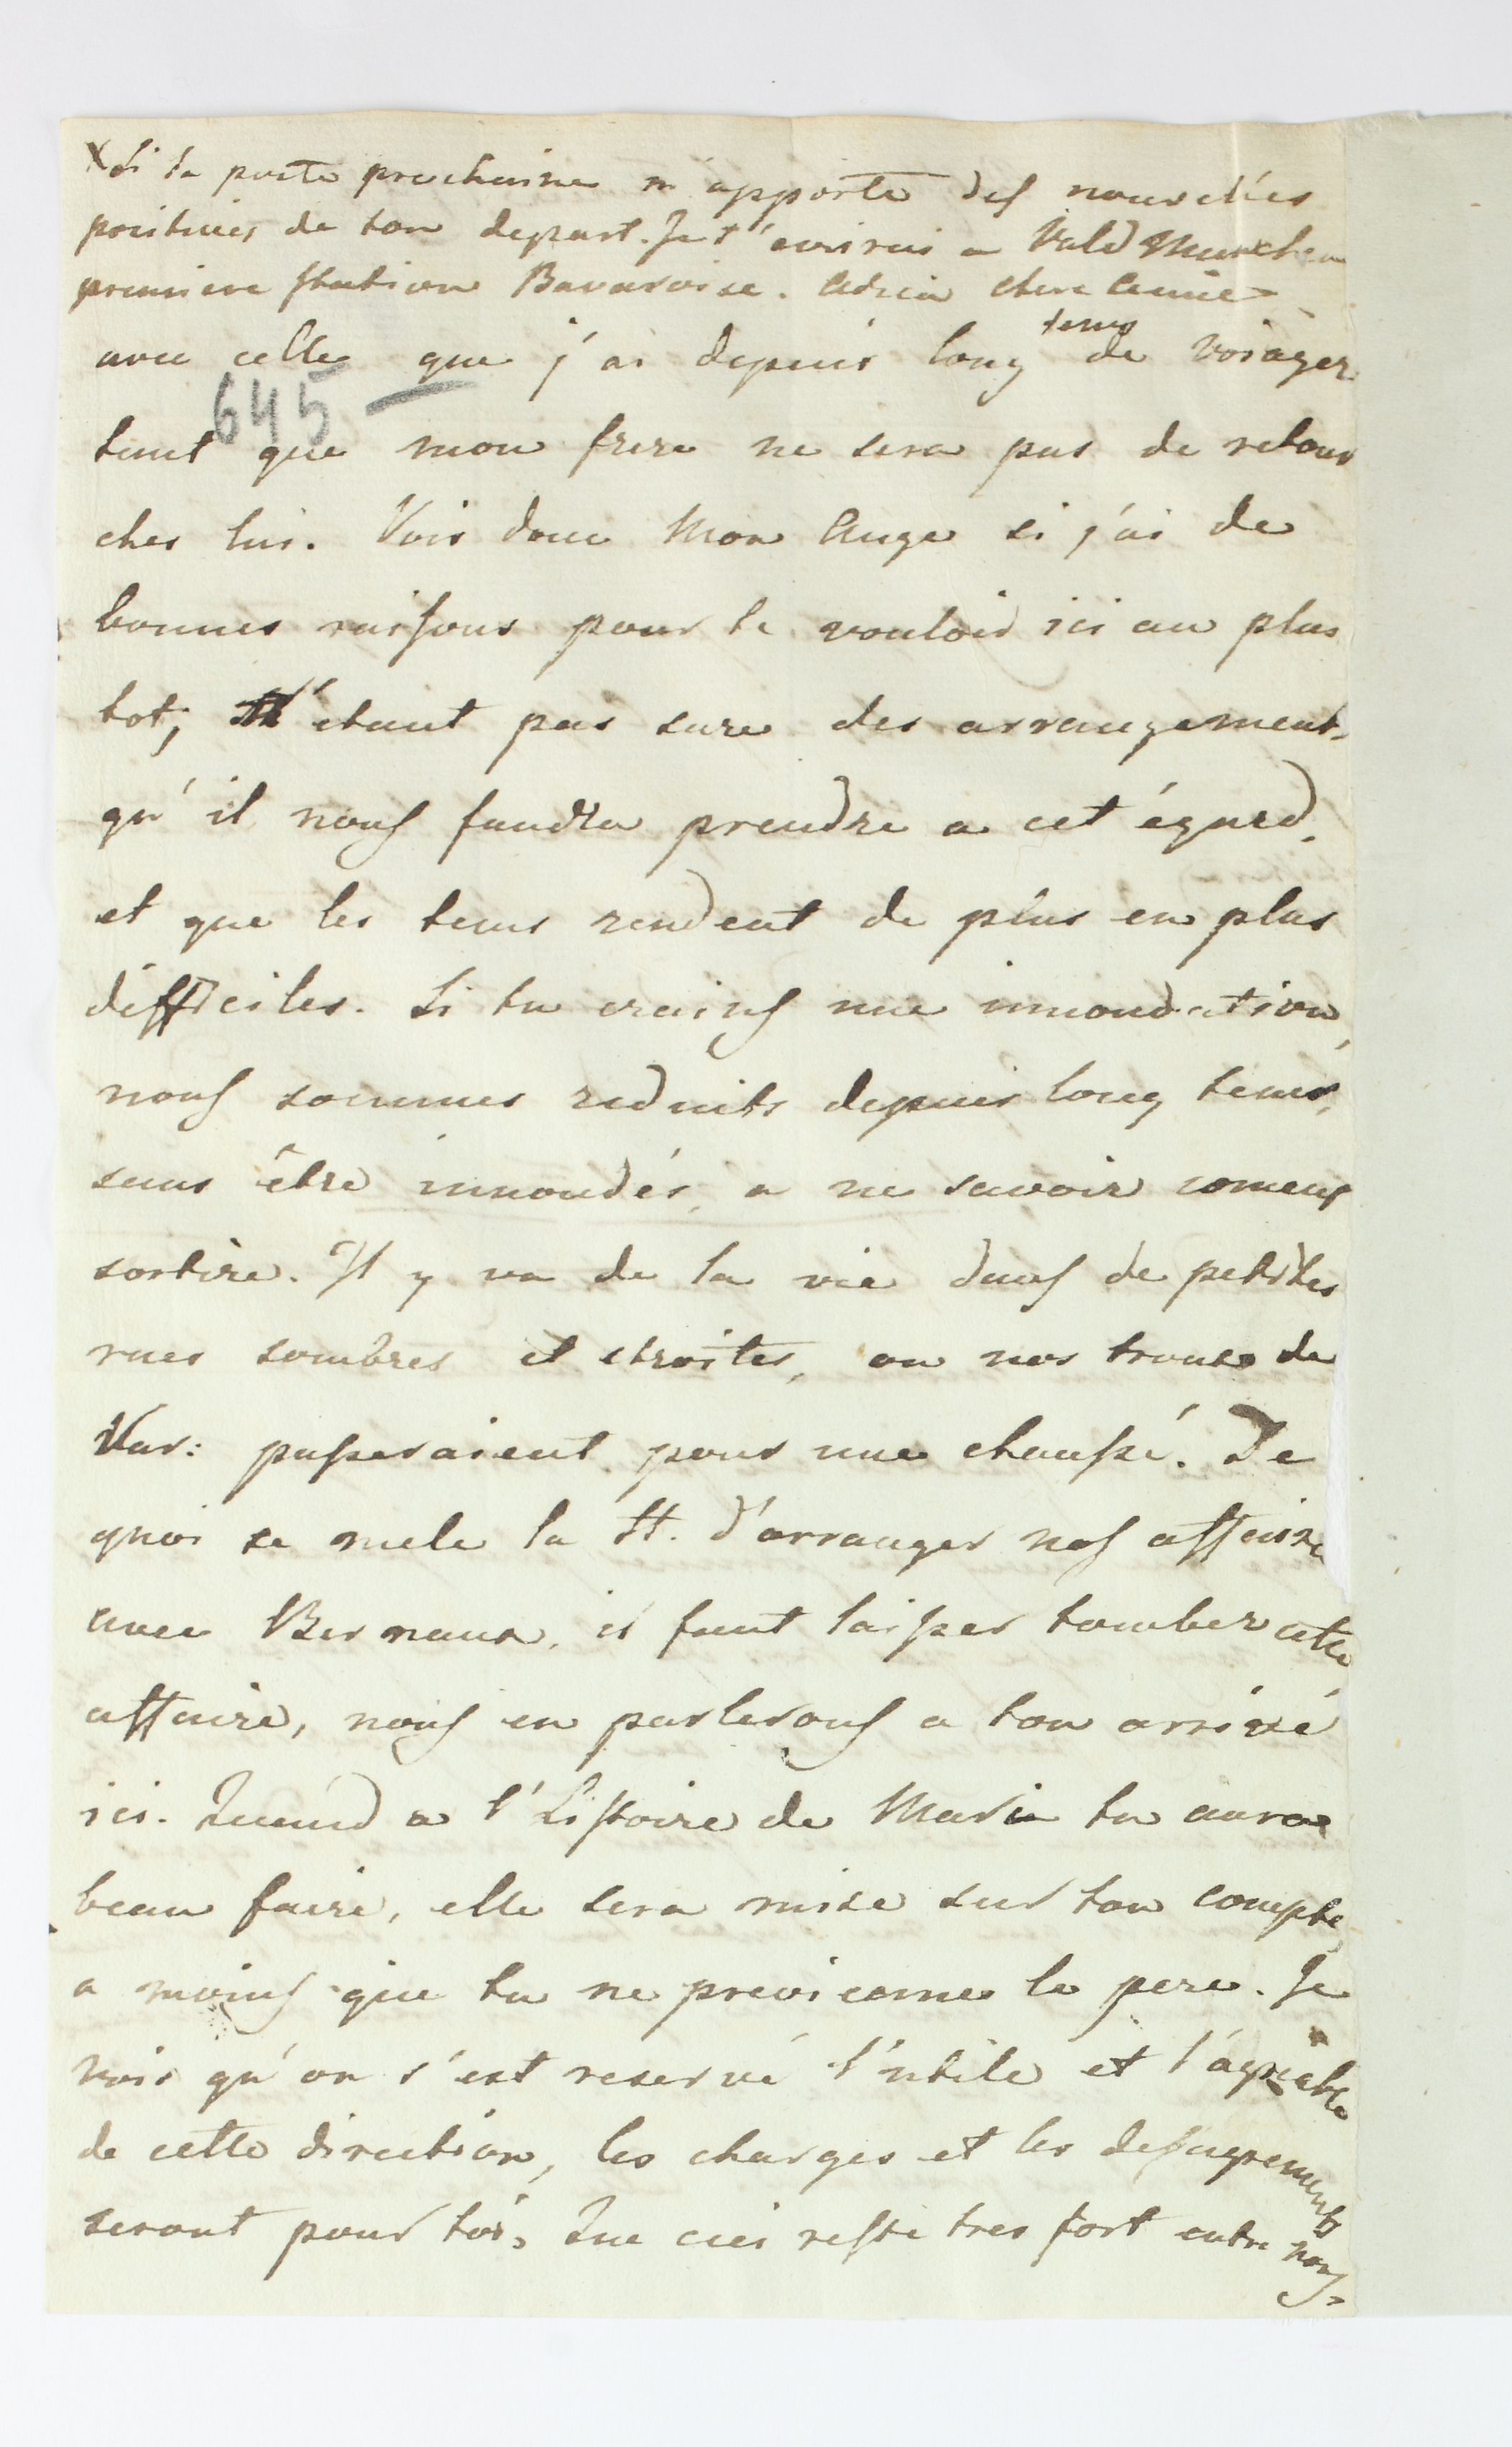 X Si la poste prochaine m'apporte des nouvelles
positives de ton depart. Je t'ecrirai a Vald Munchen
premiere station Bavaroise. Adieu chere Amie
avec celle que j'ai depuis long tems de voiager
645
tant que mon frere ne sera pas de retour
ches lui. Vois donc Mon Ange si j'ai de
bonnes raisons pour te vouloir ici au plus
tot; n'etant pas sure des arrangement
qu'il nous faudra prendre a cet égard,
et que les tems rendent de plus en plus
difficiles. Si tu crains une innondation,
nous sommes reduits depuis long tems,
sans être innondés, a ne savoir coment
sortire. Il y va de la vie dans de petites
rues sombres et etroites, ou nos troux de
Var: passeraient pour une chaussé. De
quoi se mele la St. d'arranger nos affaire
avec Bernaux, il faut laisser tomber cette
affaire, nous en parlerons a ton arrivé
ici. Quand a l'Histoire de Marie tu auras
beau faire, elle sera mise sur ton compte,
a moins que tu ne previenne le pere. Je
vois qu'on s'est reservé l'utile et l'agreable
de cette direction, les charges et les desagrements
seront pour toi, Que ceci reste tres fort entre nous.